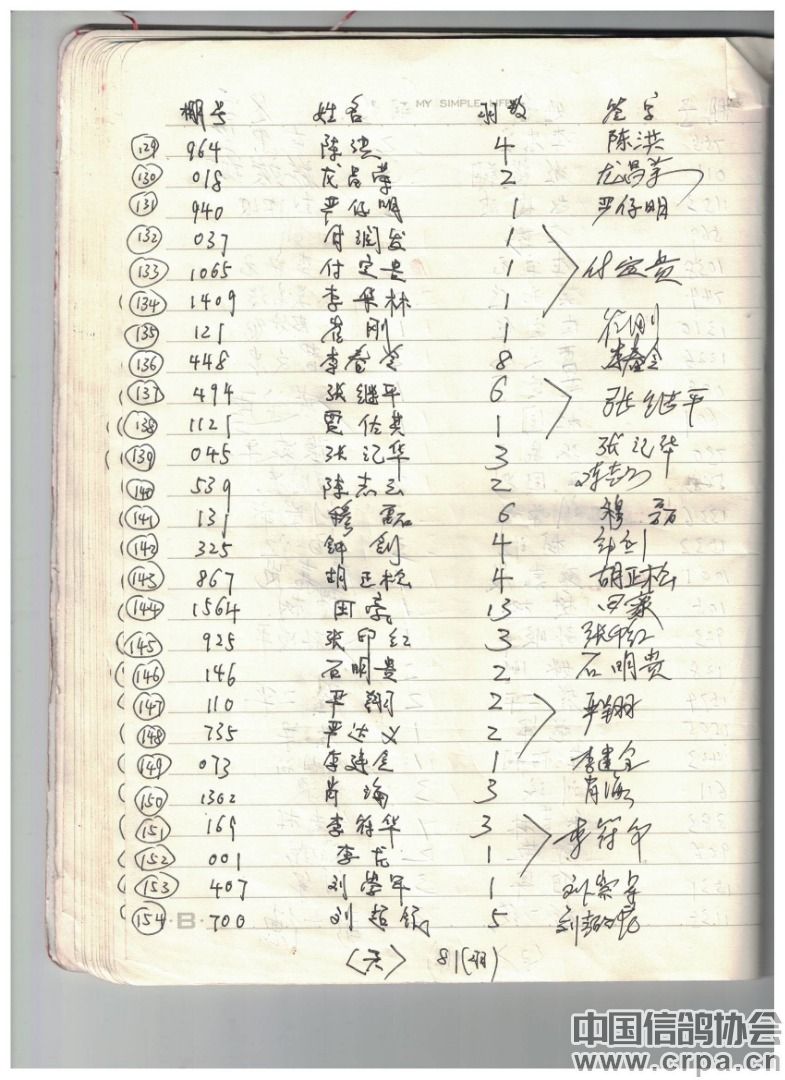 MY SIMPLE LIFE
棚号 姓名 羽数 签字
129 964 陈洪 4 陈洪
130 018 龙昌荣 2 龙昌荣
131 940 严仔明 1 严仔明
132 037 付润发 1
133 1065 付定贵 1 付定贵
134 1409 李 林 1
135 121 崔刚 1 崔刚
136 448 李春金 8 李春金
137 494 张继平 6 张继平
138 1121 贾佐其 1
139 045 张记华 3 张记华
140 539 陈志云 2
141 131 穆磊 6 穆磊
142 325 钟钊 4 钟钊
143 867 胡正松 4 胡正松
144 1564 田豪 13 田豪
145 925 张印红 3 张印红
146 146 石明贵 2 石明贵
147 110 严翔 2 严翔
148 735 严达义 2
149 073 李建全 1 李建全
150 1362 肖海 3 肖海
151 169 李符华 3 李符华
152 001 李龙 1
153 407 刘荣军 1 刘荣军
154 B 700 刘超 5 刘超
81(羽)
中国信鸽协会
www.crpa.cn